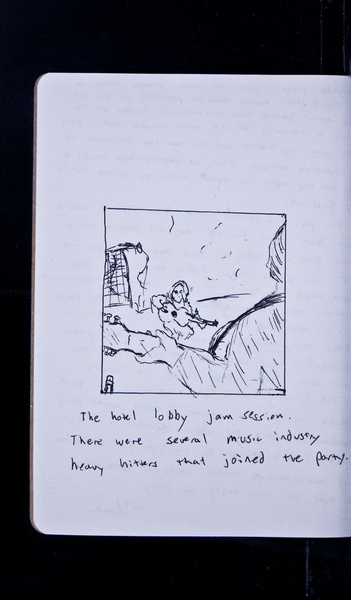 The hotel lobby jam session.
There were several music industry
heavy hitters that joined the party.